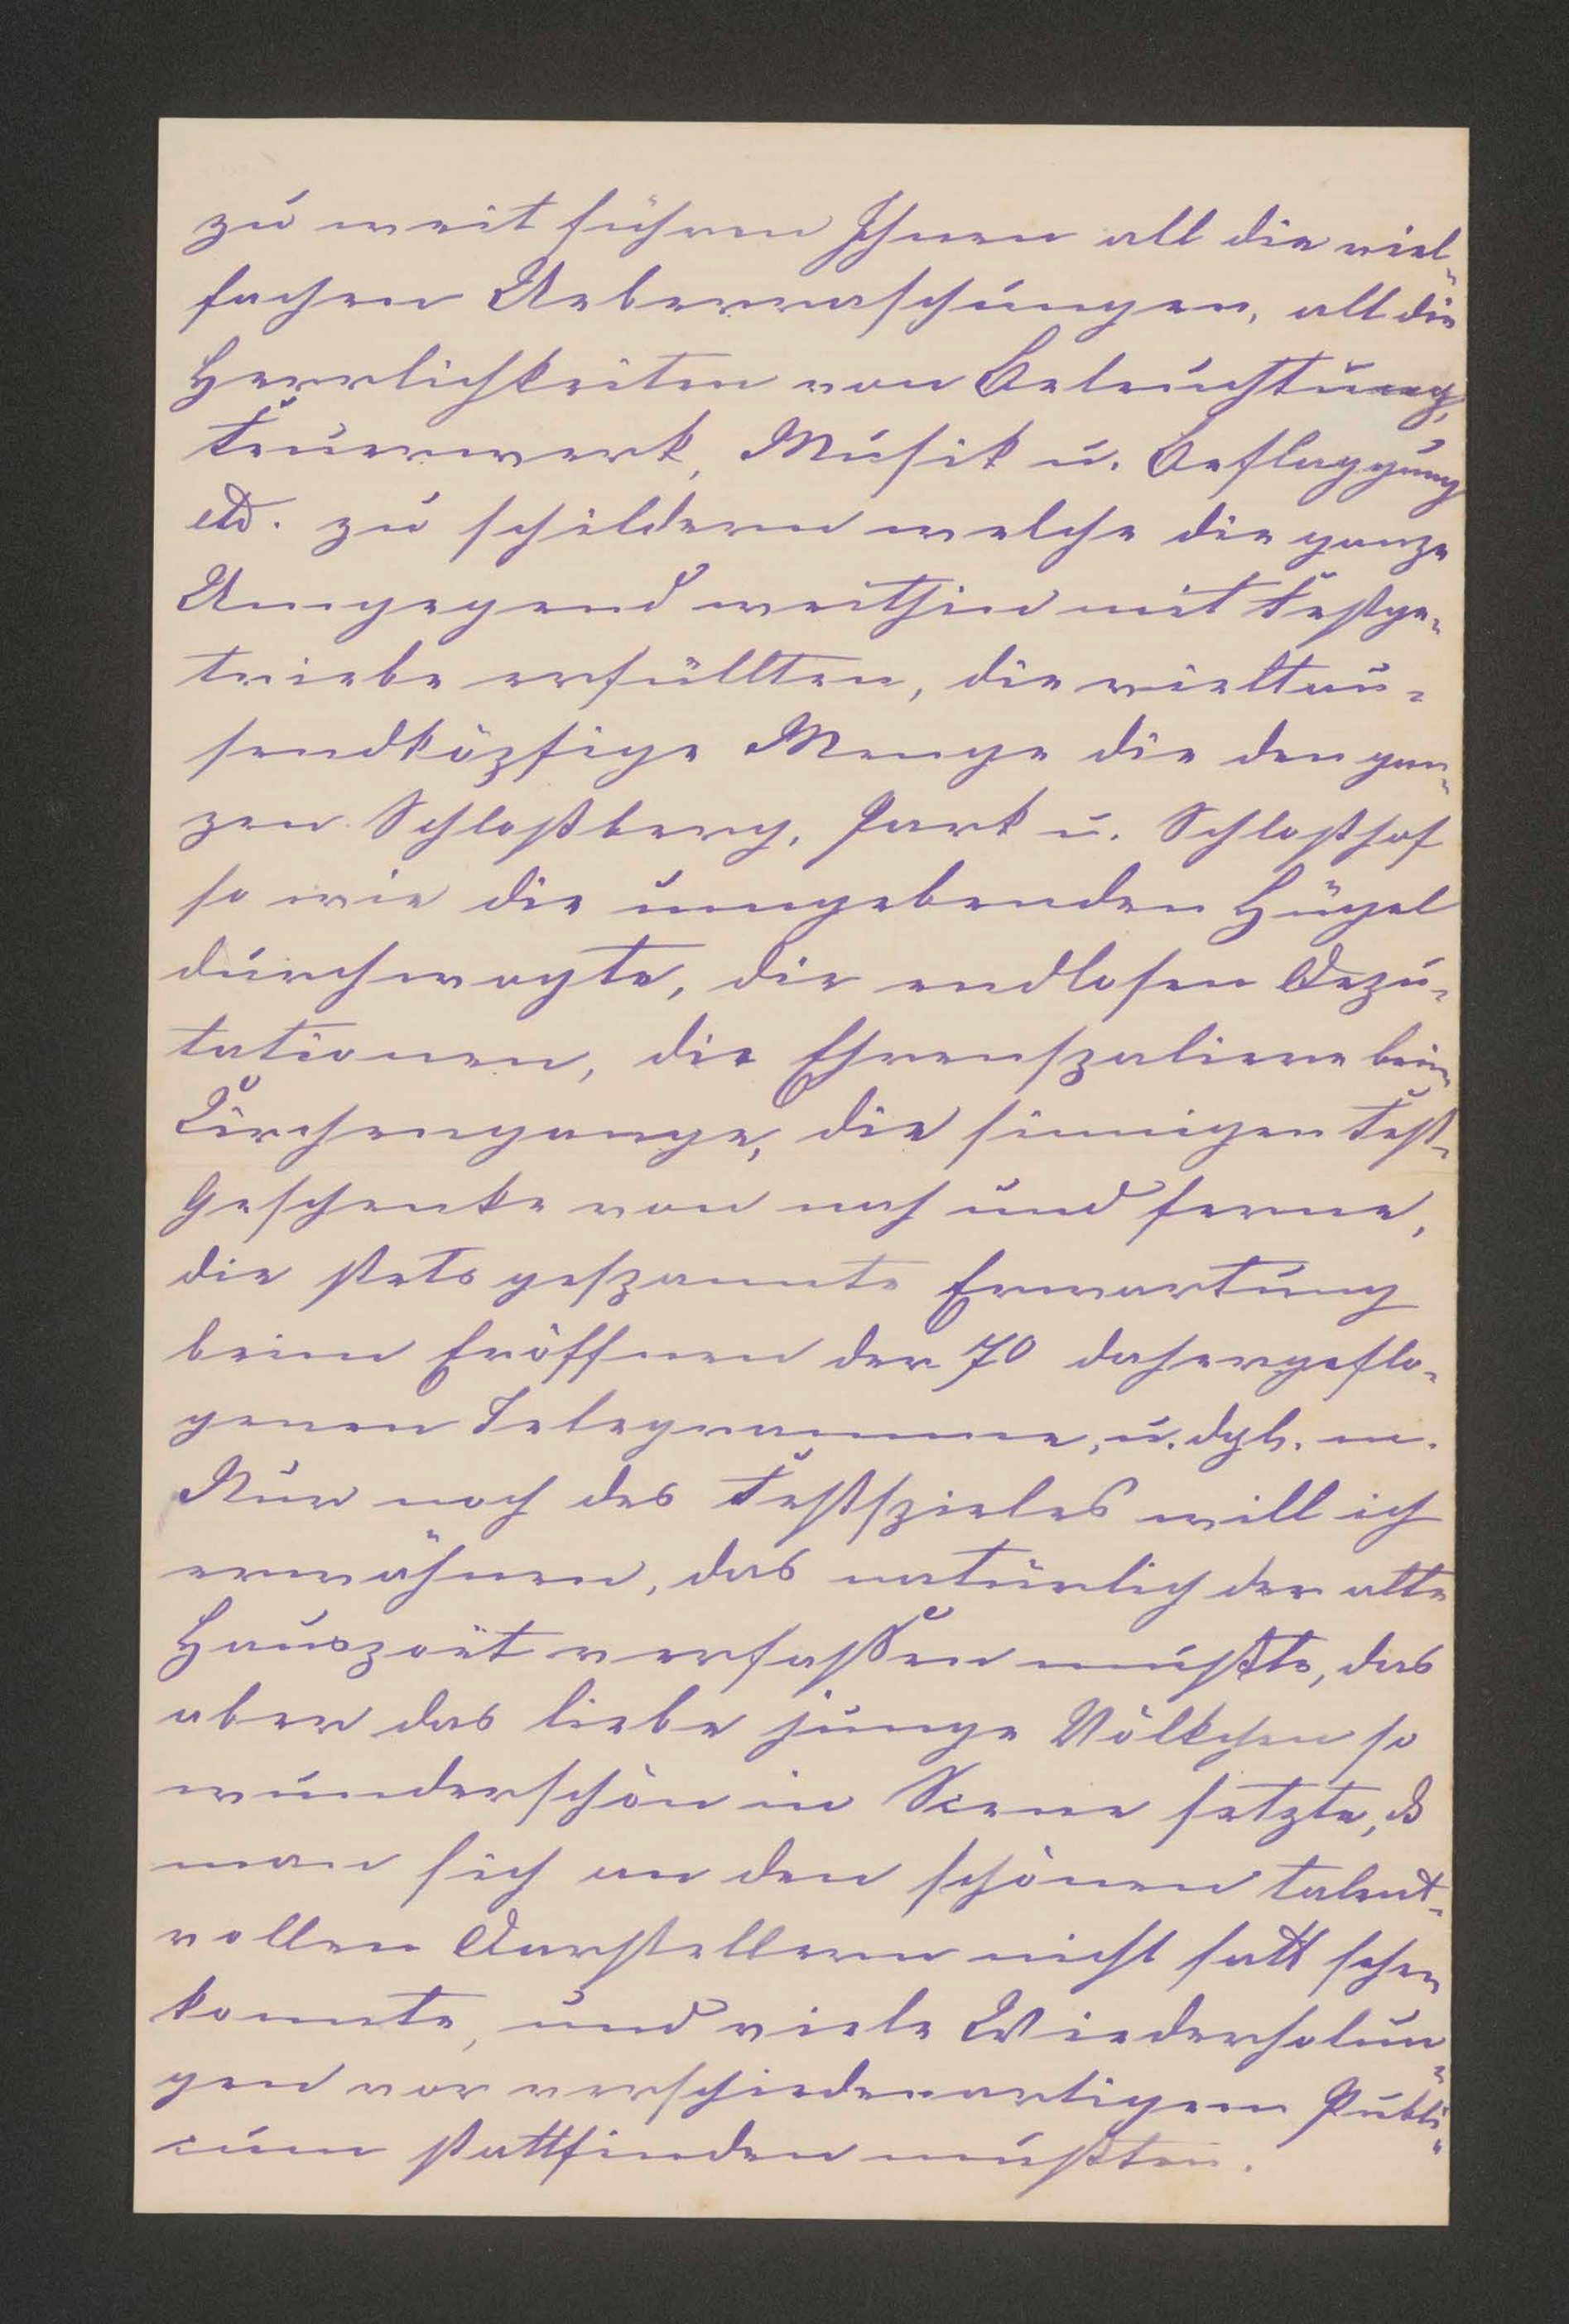 zu weit führen Ihnen all die viel-
fachen Ueberraschungen, all die
Herrlichkeiten von Beleuchtung,
Feuerwerk, Musik u. Beflaggung
etc. zu schildern welche die ganze
Umgegend weithin mit Festge-
triebe erfüllten, die vieltau-
sendköpfige Menge die den gan-
zen Schloßberg, Park u. Schloßhof
so wie die umgebenden Hügel
durchwogte, die endlosen Depu-
tationen, die Ehrenspaliere beim
Kirchengange, die sinnigen Fest-
Geschenke von nah und ferne,
die stets gespannte Erwartung
beim Eröffnen der 70 dahergeflo-
genen Telegramme, u. dgl. m.
Nur noch des Festspieles will ich
erwähnen, das natürlich der alte
Hauspoët verfaßen mußte, das
aber das liebe junge Völkchen so
wunderschön in Scene setzte, ds
man sich an den schönen talent-
vollen Darstellern nicht satt sehen
konnte, und viele Wiederholun-
gen vor verschiedenartigem Publi-
cum stattfinden mußten.